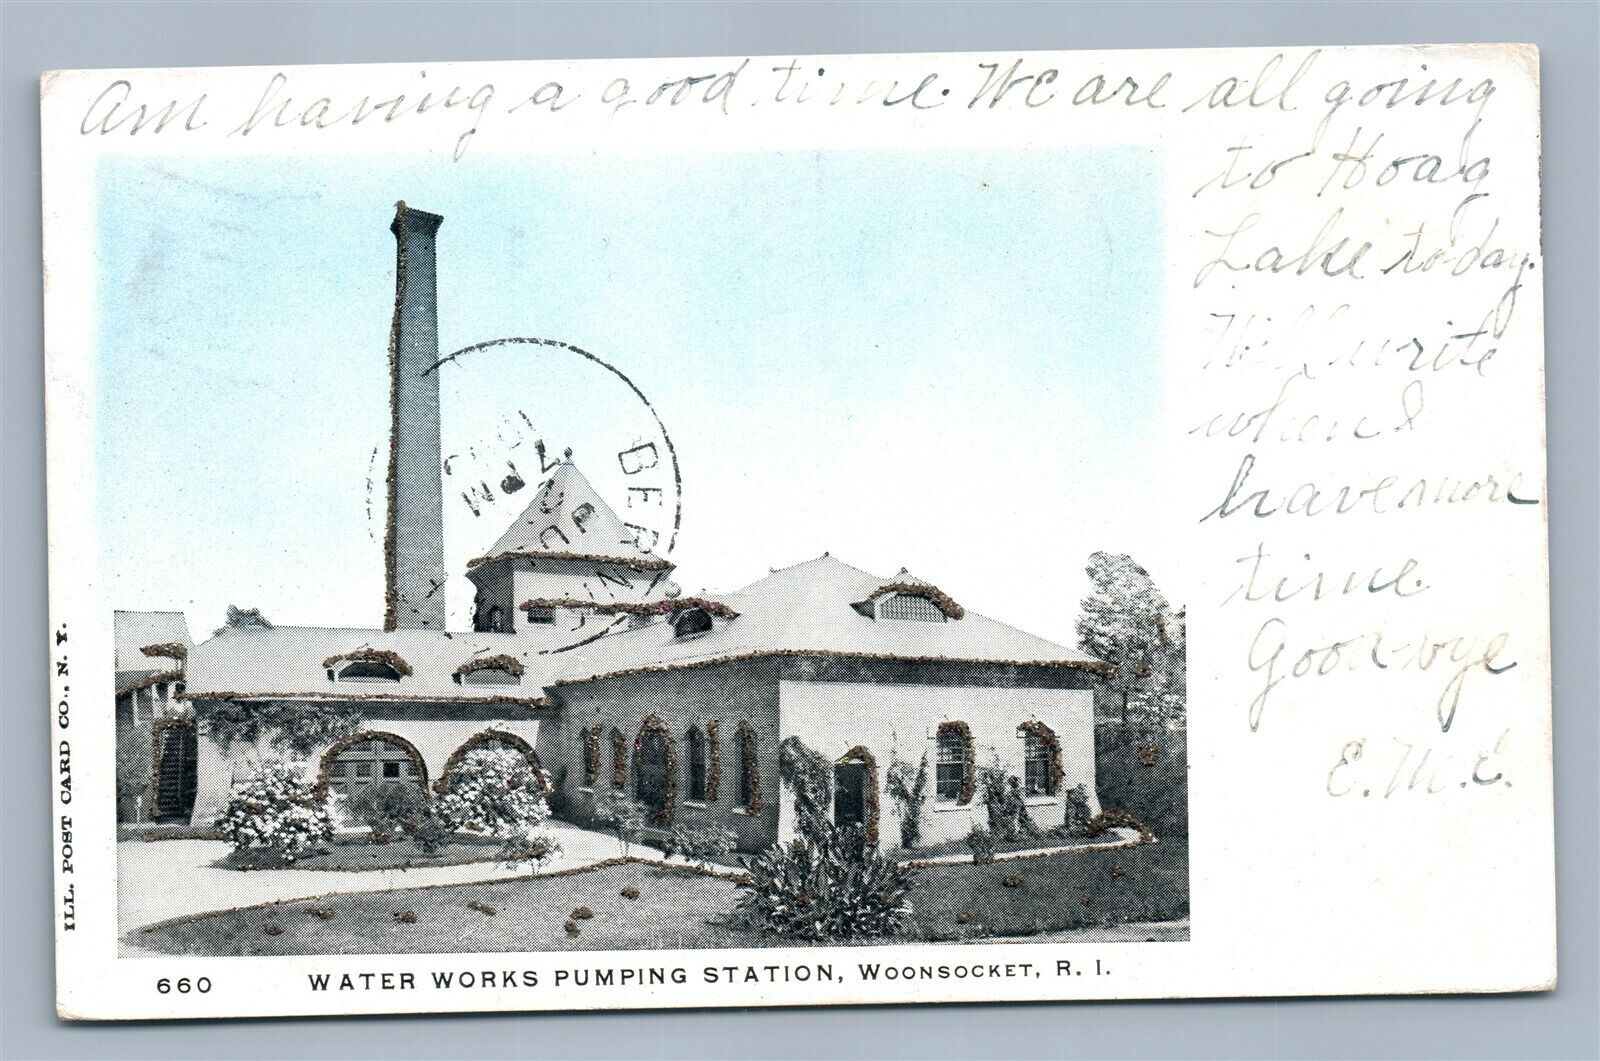 Am having a good time. We are all going
to Hoag
Lake to-day.
Will write
when I
have more
time.
Good-bye
E. M. C.
BER
7 PM
ILL. POST CARD CO., N. Y.
660 WATER WORKS PUMPING STATION, WOONSOCKET, R. I.